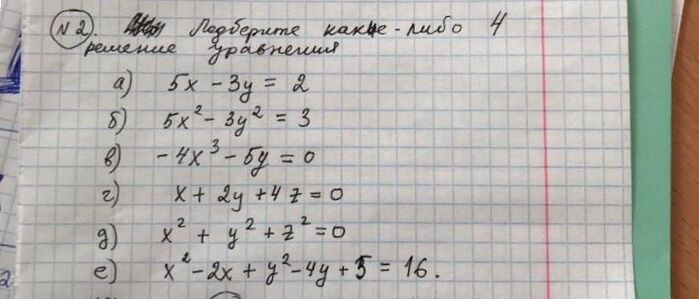 №2. Подберите какие-либо 4
решение уравнения
а) 5x - 3y = 2
б) 5x² - 3y² = 3
в) -4x³ - 5y = 0
г) x + 2y + 4z = 0
д) x² + y² + z² = 0
е) x² - 2x + y² - 4y + 5 = 16.